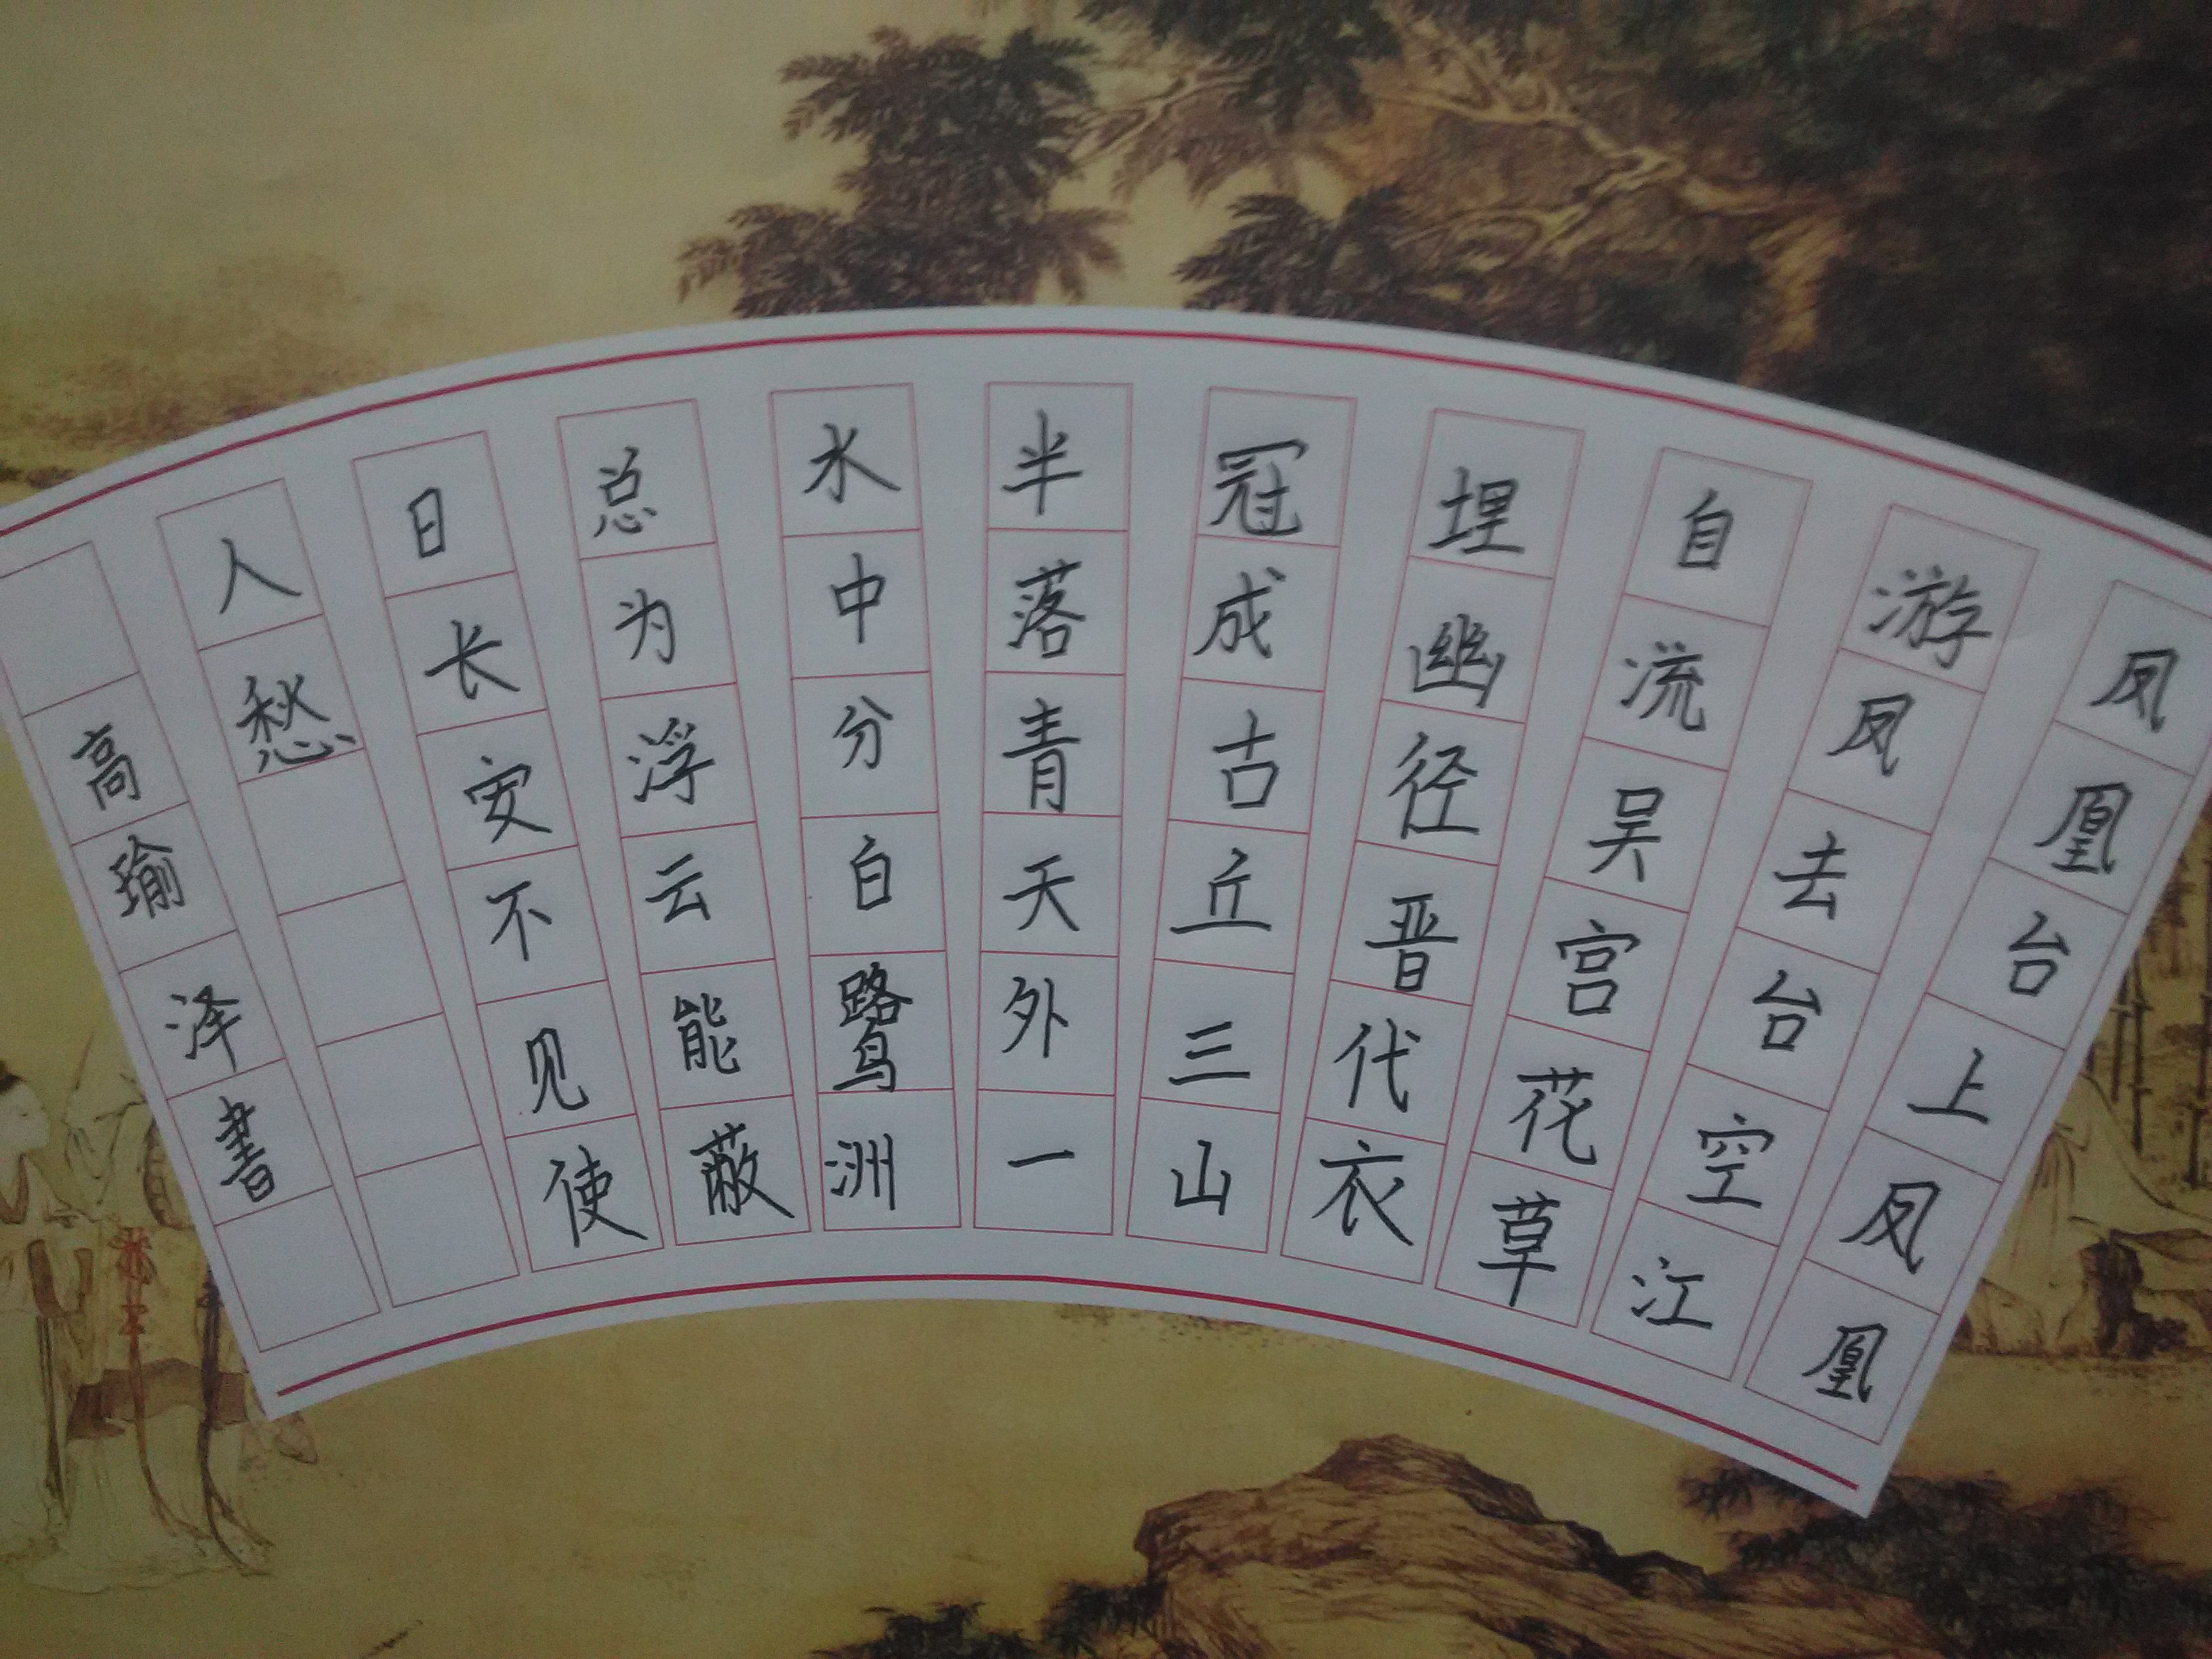 凤凰台上凤凰
游凤去台空江
自流吴宫花草
埋幽径晋代衣
冠成古丘三山
半落青天外一
水中分白鹭洲
总为浮云能蔽
日长安不见使
人愁
高瑜泽書